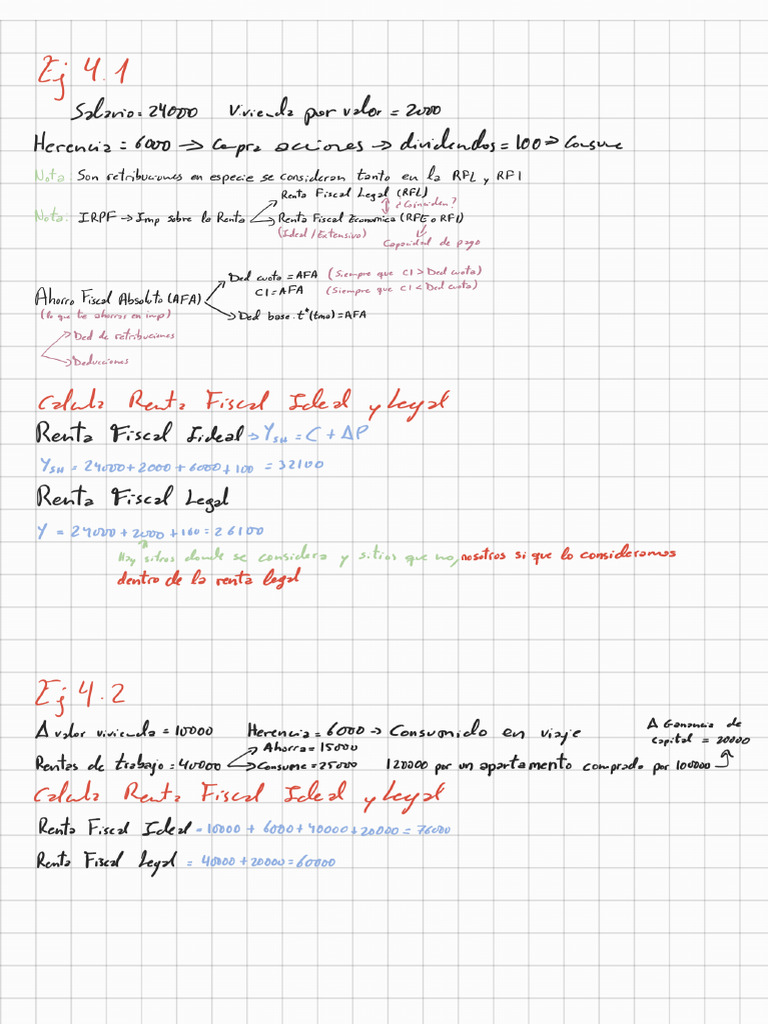 Ej 4.1
Salario = 24000 Vivienda por valor = 2000
Herencia = 6000 → Compra acciones → dividendos = 100 → Consume
Nota: Son retribuciones en especie se consideran tanto en la RFL y RFI
Renta Fiscal Legal (RFL)
¿Coinciden?
Nota: IRPF → Imp sobre la Renta → Renta Fiscal Económica (RFE o RFI)
(Ideal / Extensivo)
Capacidad de pago
Ded cuota = AFA (Siempre que CI > Ded cuota)
CI = AFA (Siempre que CI < Ded cuota)
Ahorro Fiscal Absoluto (AFA)
(lo que te ahorras en imp)
Ded base · t*(tmg) = AFA
Ded de retribuciones
Deducciones
Calcula Renta Fiscal Ideal y Legal
Renta Fiscal Iideal → Ysh = C + ΔP
Ysh = 24000 + 2000 + 6000 + 100 = 32100
Renta Fiscal Legal
Y = 24000 + 2000 + 100 = 26100
Hay sitios donde se considera y sitios que no, nosotros si que lo consideramos
dentro de la renta legal
Ej 4.2
Δ valor vivienda = 10000 Herencia = 6000 → Consumido en viaje
Δ Ganancia de
capital = 20000
Ahorra = 15000
Rentas de trabajo = 40000 → Consume = 25000 120000 por un apartamento comprado por 100000
Calcula Renta Fiscal Ideal y Legal
Renta Fiscal Ideal = 10000 + 6000 + 40000 + 20000 = 76000
Renta Fiscal Legal = 40000 + 20000 = 60000